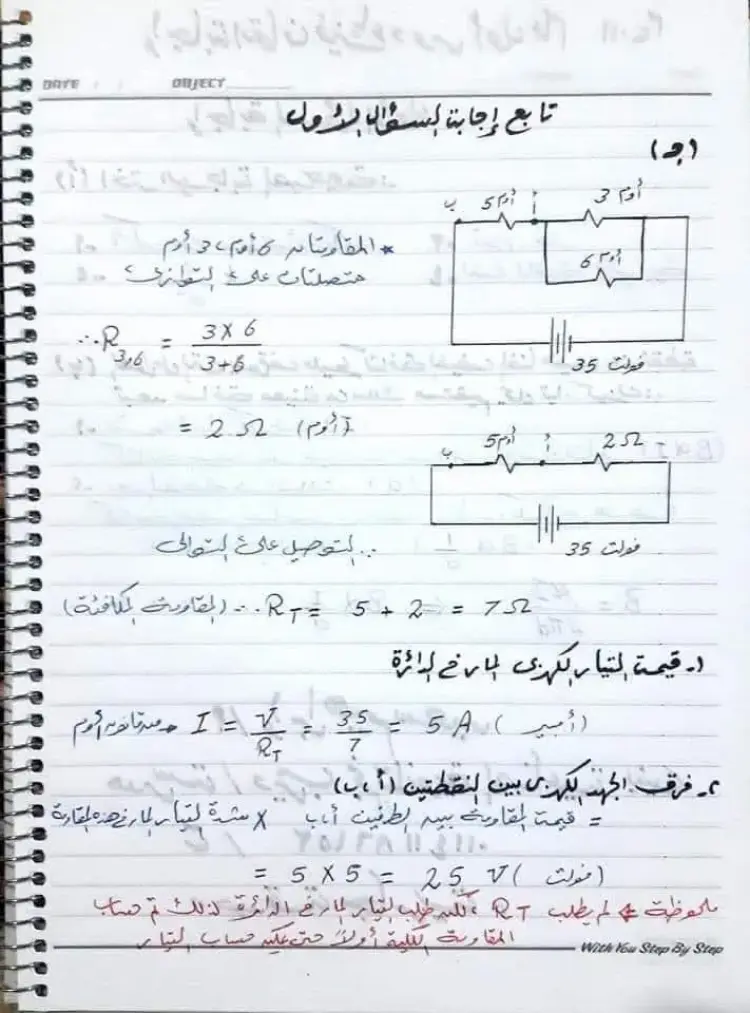 DATE OBJECT
تابع إجابة السؤال الأول
(جـ)
ب 5 أوم أ 3 أوم
6 أوم
35 فولت
* المقاومتان 6 أوم، 3 أوم
متصلتان على التوازى
∴ R3,6 = 3 × 6 / 3 + 6
= 2 Ω (أوم)
ب 5 أوم أ 2 Ω
35 فولت
∴ التوصيل على التوالى
∴ RT = 5 + 2 = 7 Ω (المقاومة المكافئة)
١- قيمة التيار الكهربى المار فى الدائرة
I = V / RT = 35 / 7 = 5 A (أمبير) من قانون أوم
٢- فرق الجهد الكهربى بين النقطتين (أ، ب)
= قيمة المقاومة بين الطرفين أ، ب × شدة التيار المار فى هذه المقاومة
= 5 × 5 = 25 V (فولت)
ملحوظة ← لم يطلب RT، لكنه طلب التيار المار فى الدائرة لذلك تم حساب
المقاومة الكلية أولاً حتى يمكنه حساب التيار
With You Step By Step